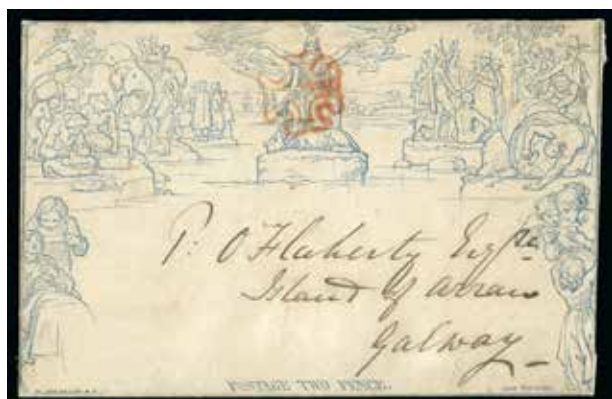 P. O'Flaherty Esqre
Island of Arran
Galway
POSTAGE TWO PENCE.